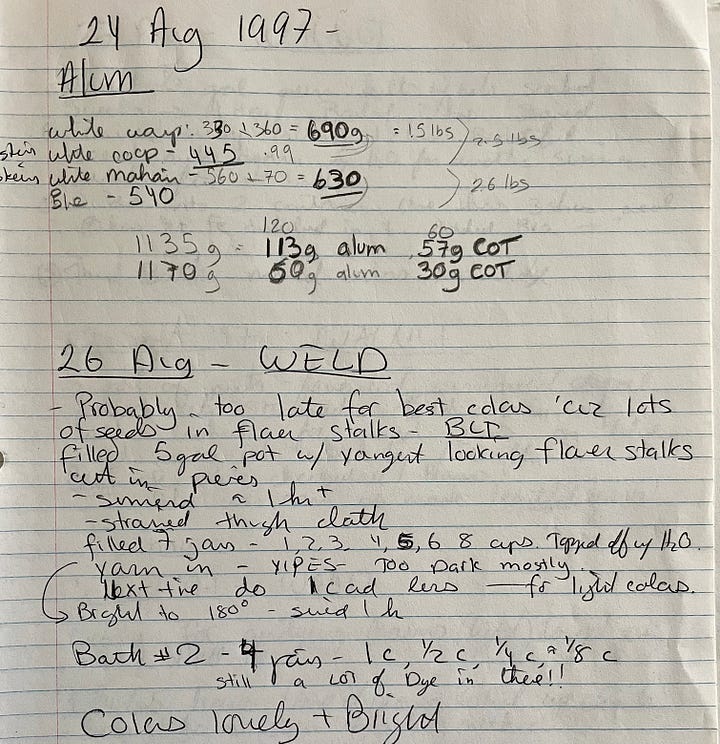 24 Aug 1997 -
Alum
white warp: 330 + 360 = 690g = 1.5 lbs
skein white coop - 445 .99 2.5 lbs
skeins white mohair - 560 + 70 = 630 2.6 lbs
- 540
120 60
1135g = 113g alum 57g COT
1170g 60g alum 30g COT
26 Aug - WELD
- Probably too late for best colors 'cuz lots
of seeds in flower stalks - BUT
filled 5 gal pot w/ youngest looking flower stalks
cut in pieces
- simmered ≈ 1 hr +
- strained through cloth
filled 7 jars - 1, 2, 3, 4, 5, 6 8 cups. Topped off w/ H2O.
yarn in - YIPES - TOO DARK mostly.
Next time do 1 cup less — for light colors.
Brought to 180° - 1 h
Bath #2 - 4 jars - 1 c, 1/2 c, 1/4 c, 1/8 c
still a LOT of Dye in there!!
Colors lovely + Bright